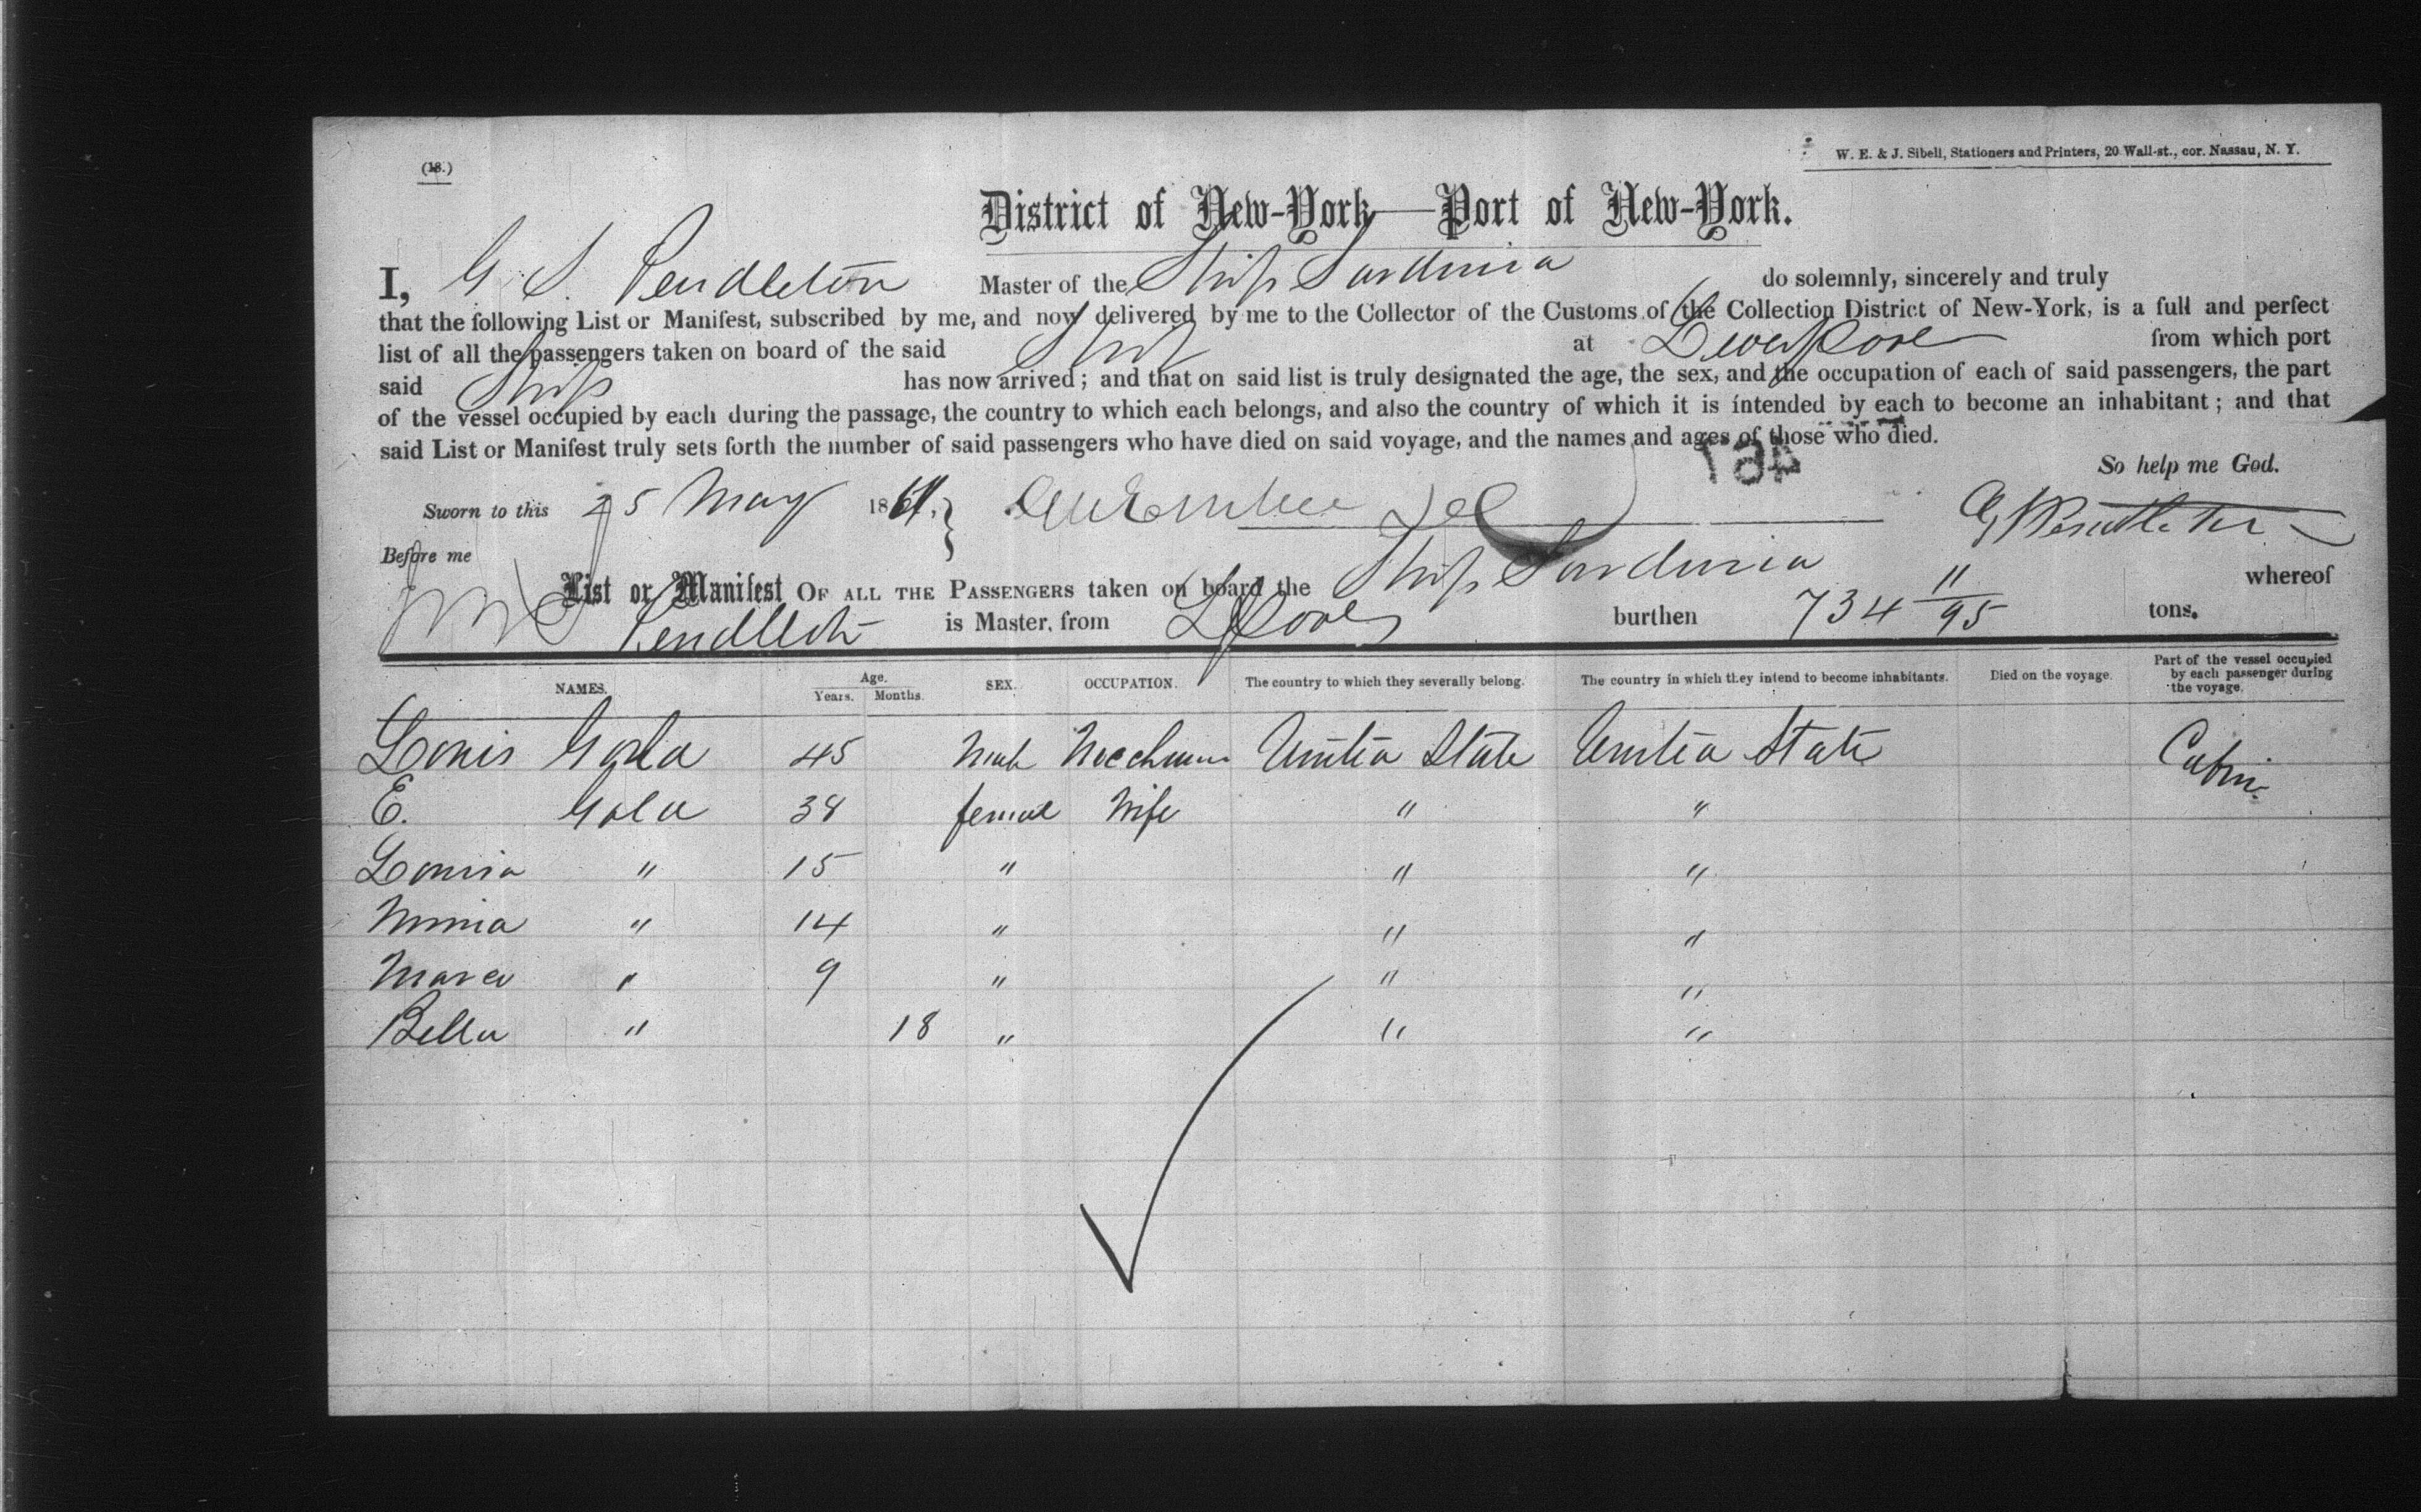 (18.)
W. E. & J. Sibell, Stationers and Printers, 20 Wall-st., cor. Nassau, N. Y.
District of New-York—Port of New-York.
I, G. S. Pendleton Master of the Ship Sardinia do solemnly, sincerely and truly
that the following List or Manifest, subscribed by me, and now delivered by me to the Collector of the Customs of the Collection District of New-York, is a full and perfect
list of all the passengers taken on board of the said Ship at Liverpool from which port
said Ship has now arrived; and that on said list is truly designated the age, the sex, and the occupation of each of said passengers, the part
of the vessel occupied by each during the passage, the country to which each belongs, and also the country of which it is intended by each to become an inhabitant; and that
said List or Manifest truly sets forth the number of said passengers who have died on said voyage, and the names and ages of those who died.
461
So help me God.
Sworn to this 25 May 1861. G S Pendleton
Before me
List or Manifest OF ALL THE PASSENGERS taken on board the Ship Sardinia whereof
Pendleton is Master, from LPool burthen 734 11/95 tons.
NAMES. Age. Years. Months. SEX. OCCUPATION. The country to which they severally belong. The country in which they intend to become inhabitants. Died on the voyage. Part of the vessel occupied by each passenger during the voyage.
Louis Gola 45 Male United State United State Cabin
E. Gola 38 femal Wife " "
Louisa " 15 " " "
" 14 " " "
" 9 " " "
Bella " 18 " " "